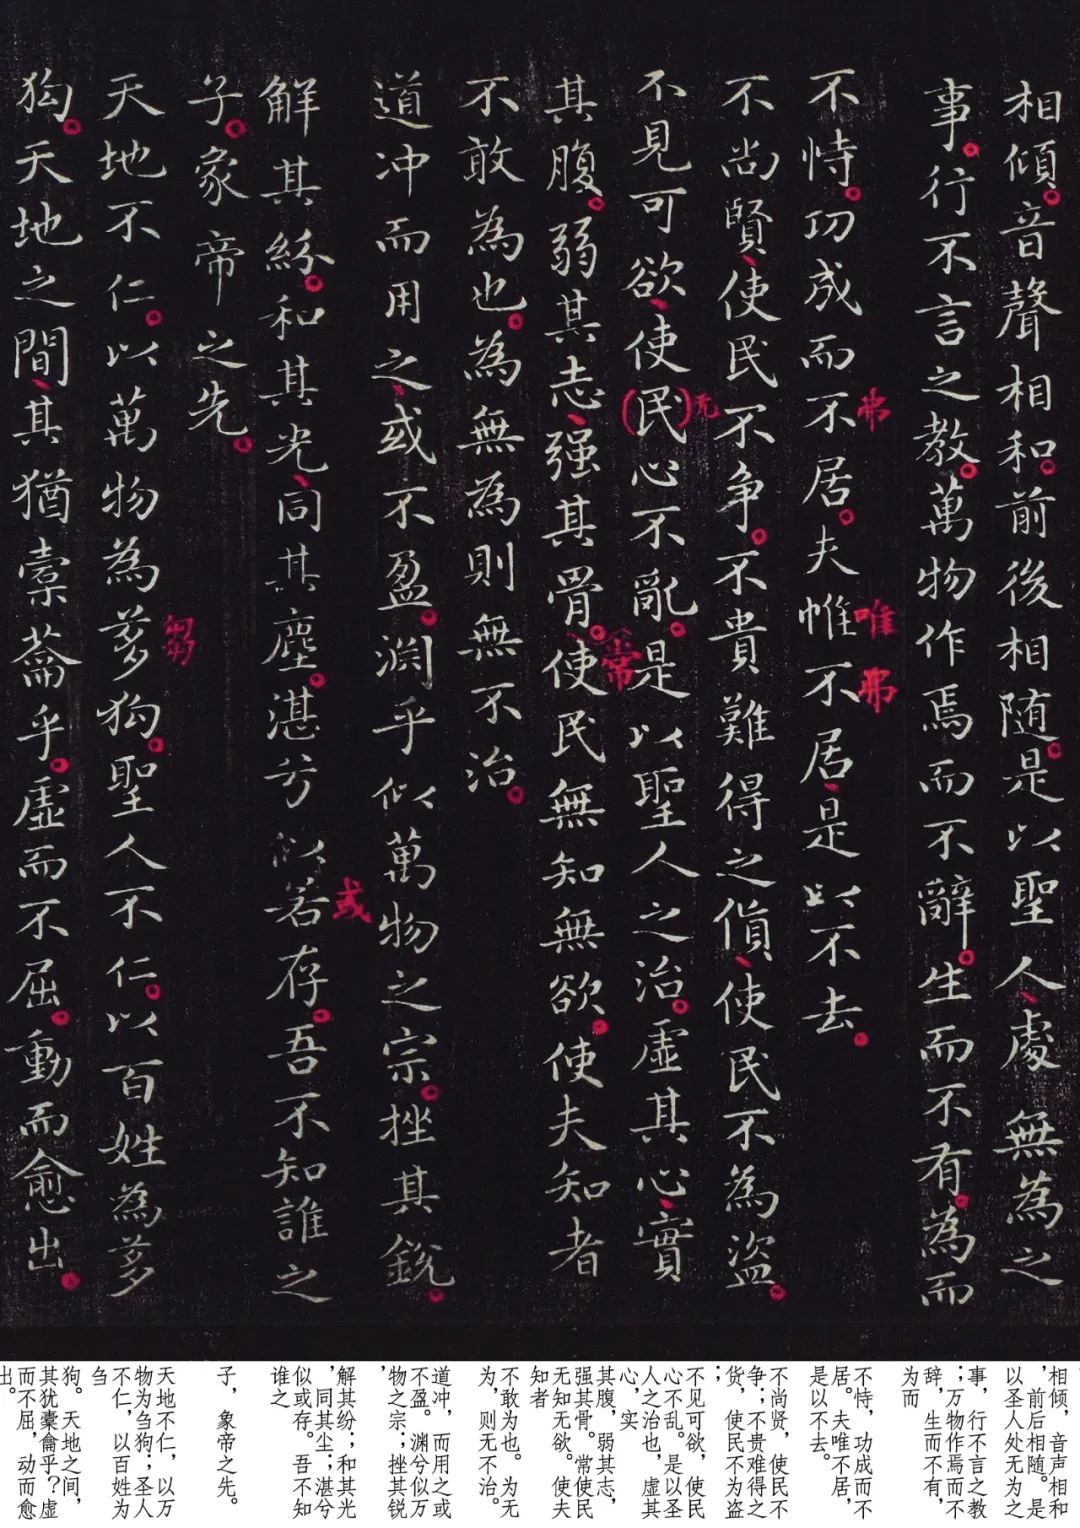 相傾。音聲相和。前後相随。是以聖人、處無為之
事。行不言之教。萬物作焉而不辭。生而不有。為而
不恃。功成而不居。夫惟不居、是以不去。
弗
唯
弗
不尚賢、使民不争。不貴難得之貨、使民不為盗。
不見可欲、使(民)心不亂。是以聖人之治。虛其心、實
无
其腹。弱其志、强其骨。使民無知無欲。使夫知者
常
不敢為也。為無為則無不治。
道冲而用之、或不盈。渊乎似萬物之宗。挫其銳。
解其紛。和其光、同其塵。湛兮似若存。吾不知誰之
或
子。象帝之先。
天地不仁。以萬物為芻狗。聖人不仁。以百姓為芻
芻
狗。天地之間、其猶橐龠乎。虛而不屈。動而愈出。
相倾，音声相和
，前后相随。是
以圣人处无为之
事，行不言之教
；万物作焉而不
辞，生而不有，
为而
不恃，功成而不
居。夫唯不居，
是以不去。
不尚贤，使民不
争；不贵难得之
货，使民不为盗
；
不见可欲，使民
心不乱。是以圣
人之治也，虚其
心，实
其腹，弱其志，
强其骨。常使民
无知无欲。使夫
知者
不敢为也。为无
为，则无不治。
道冲，而用之或
不盈。渊兮似万
物之宗；挫其锐
，
解其纷；和其光
，同其尘；湛兮
似或存。吾不知
谁之
子，象帝之先。
天地不仁，以万
物为刍狗；圣人
不仁，以百姓为
刍
狗。天地之间，
其犹橐龠乎？虚
而不屈，动而愈
出。